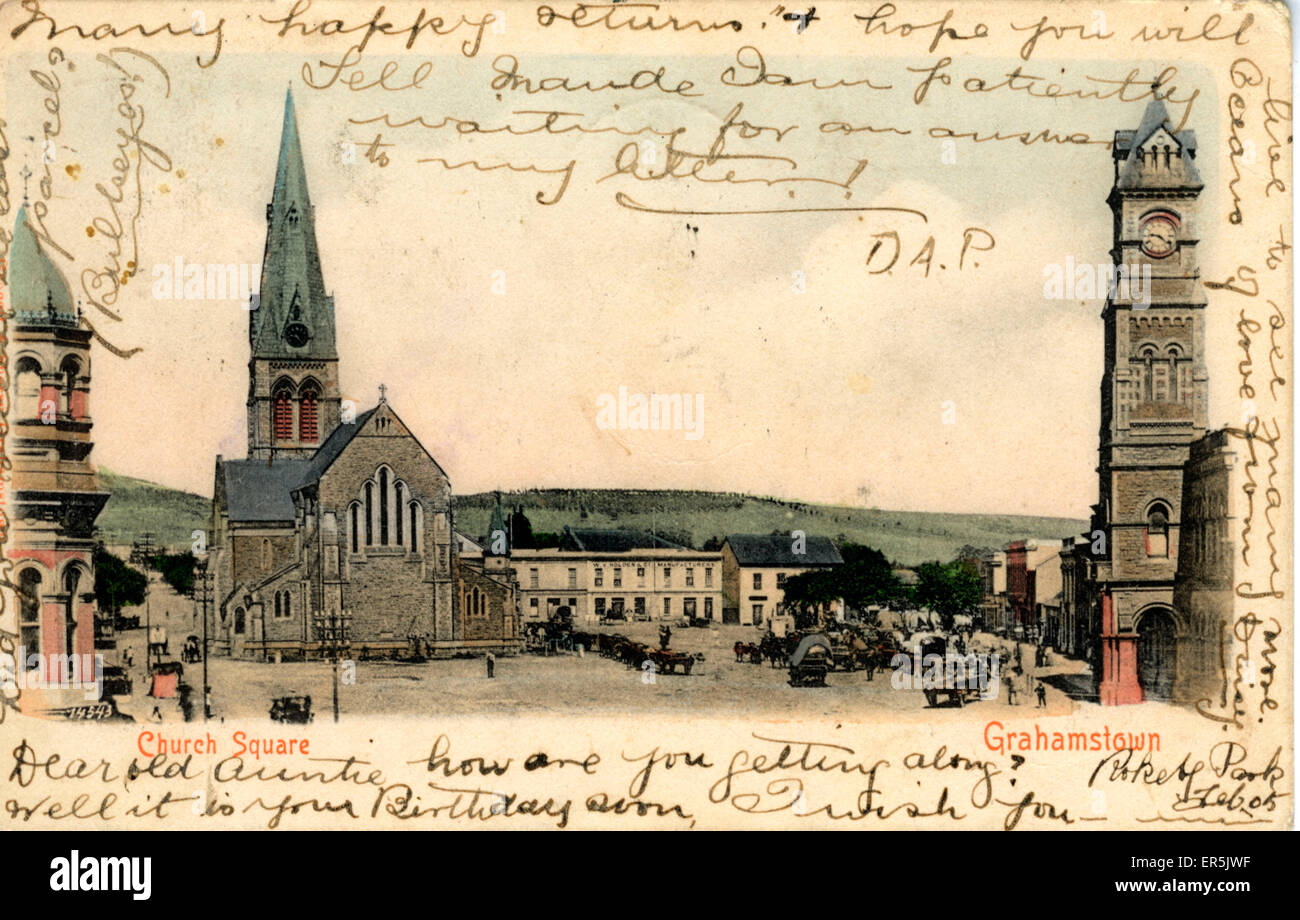 Many happy returns. & hope you will
live to see many more.
Oceans of love from Daisy.
Tell Maude I am patiently
waiting for an answer
to my letter!
D. A. P.
parcel?
W. & HOLDEN & Co MANUFACTURERS
14343
Church Square
Grahamstown
Dear old Auntie how are you getting along?
Well it is your Birthday soon, I wish you
Rokeby Park
Feb. 05
alamy
alamy
Image ID: ER5JWF
www.alamy.com